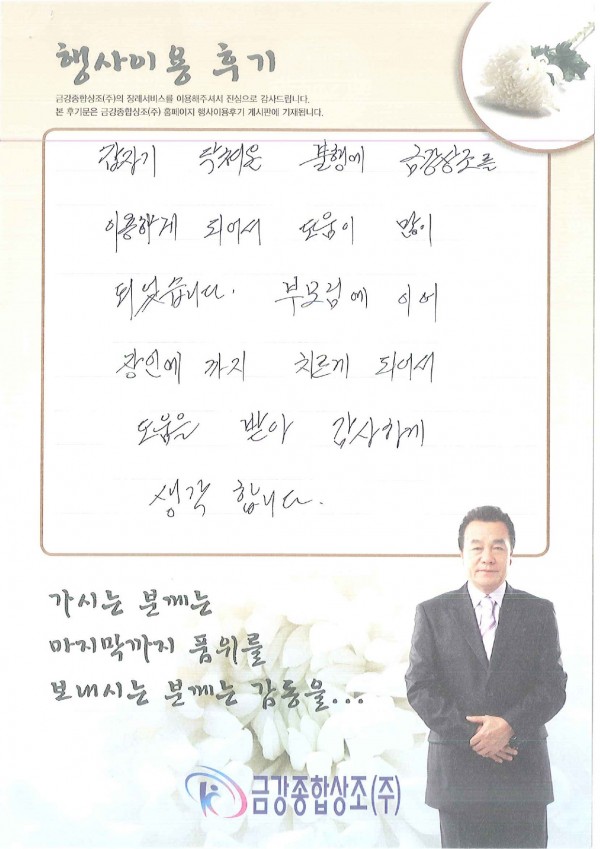 행사이용 후기
금강종합상조(주)의 장례서비스를 이용해주셔서 진심으로 감사드립니다.
본 후기문은 금강종합상조(주) 홈페이지 행사이용후기 게시판에 기재됩니다.
갑자기 닥쳐온 불행에 금강상조를
이용하게 되어서 도움이 많이
되었습니다. 부모님에 이어
장인에 까지 치르게 되어서
도움을 받아 감사하게
생각 합니다.
가시는 분께는
마지막까지 품위를
보내시는 분께는 감동을...
금강종합상조(주)